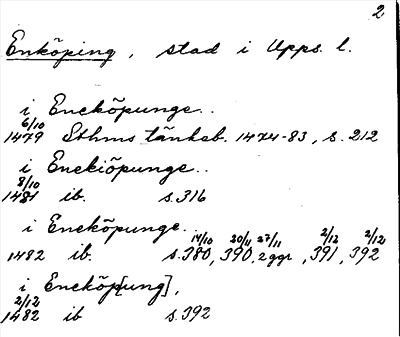 2
Enköping, stad i Upps. l.
i Enekõpunge..
6/10
1479 Sthms tänkeb. 1474-83, s. 212
i Enekiõpunge..
8/10
1481 ib. s. 316
i Enekõpunge..
14/10 20/11 27/11 2/12 2/12
1482 ib. s. 380, 390, 2 ggr, 391, 392
i Enekõp[ung],
2/12
1482 ib s. 392